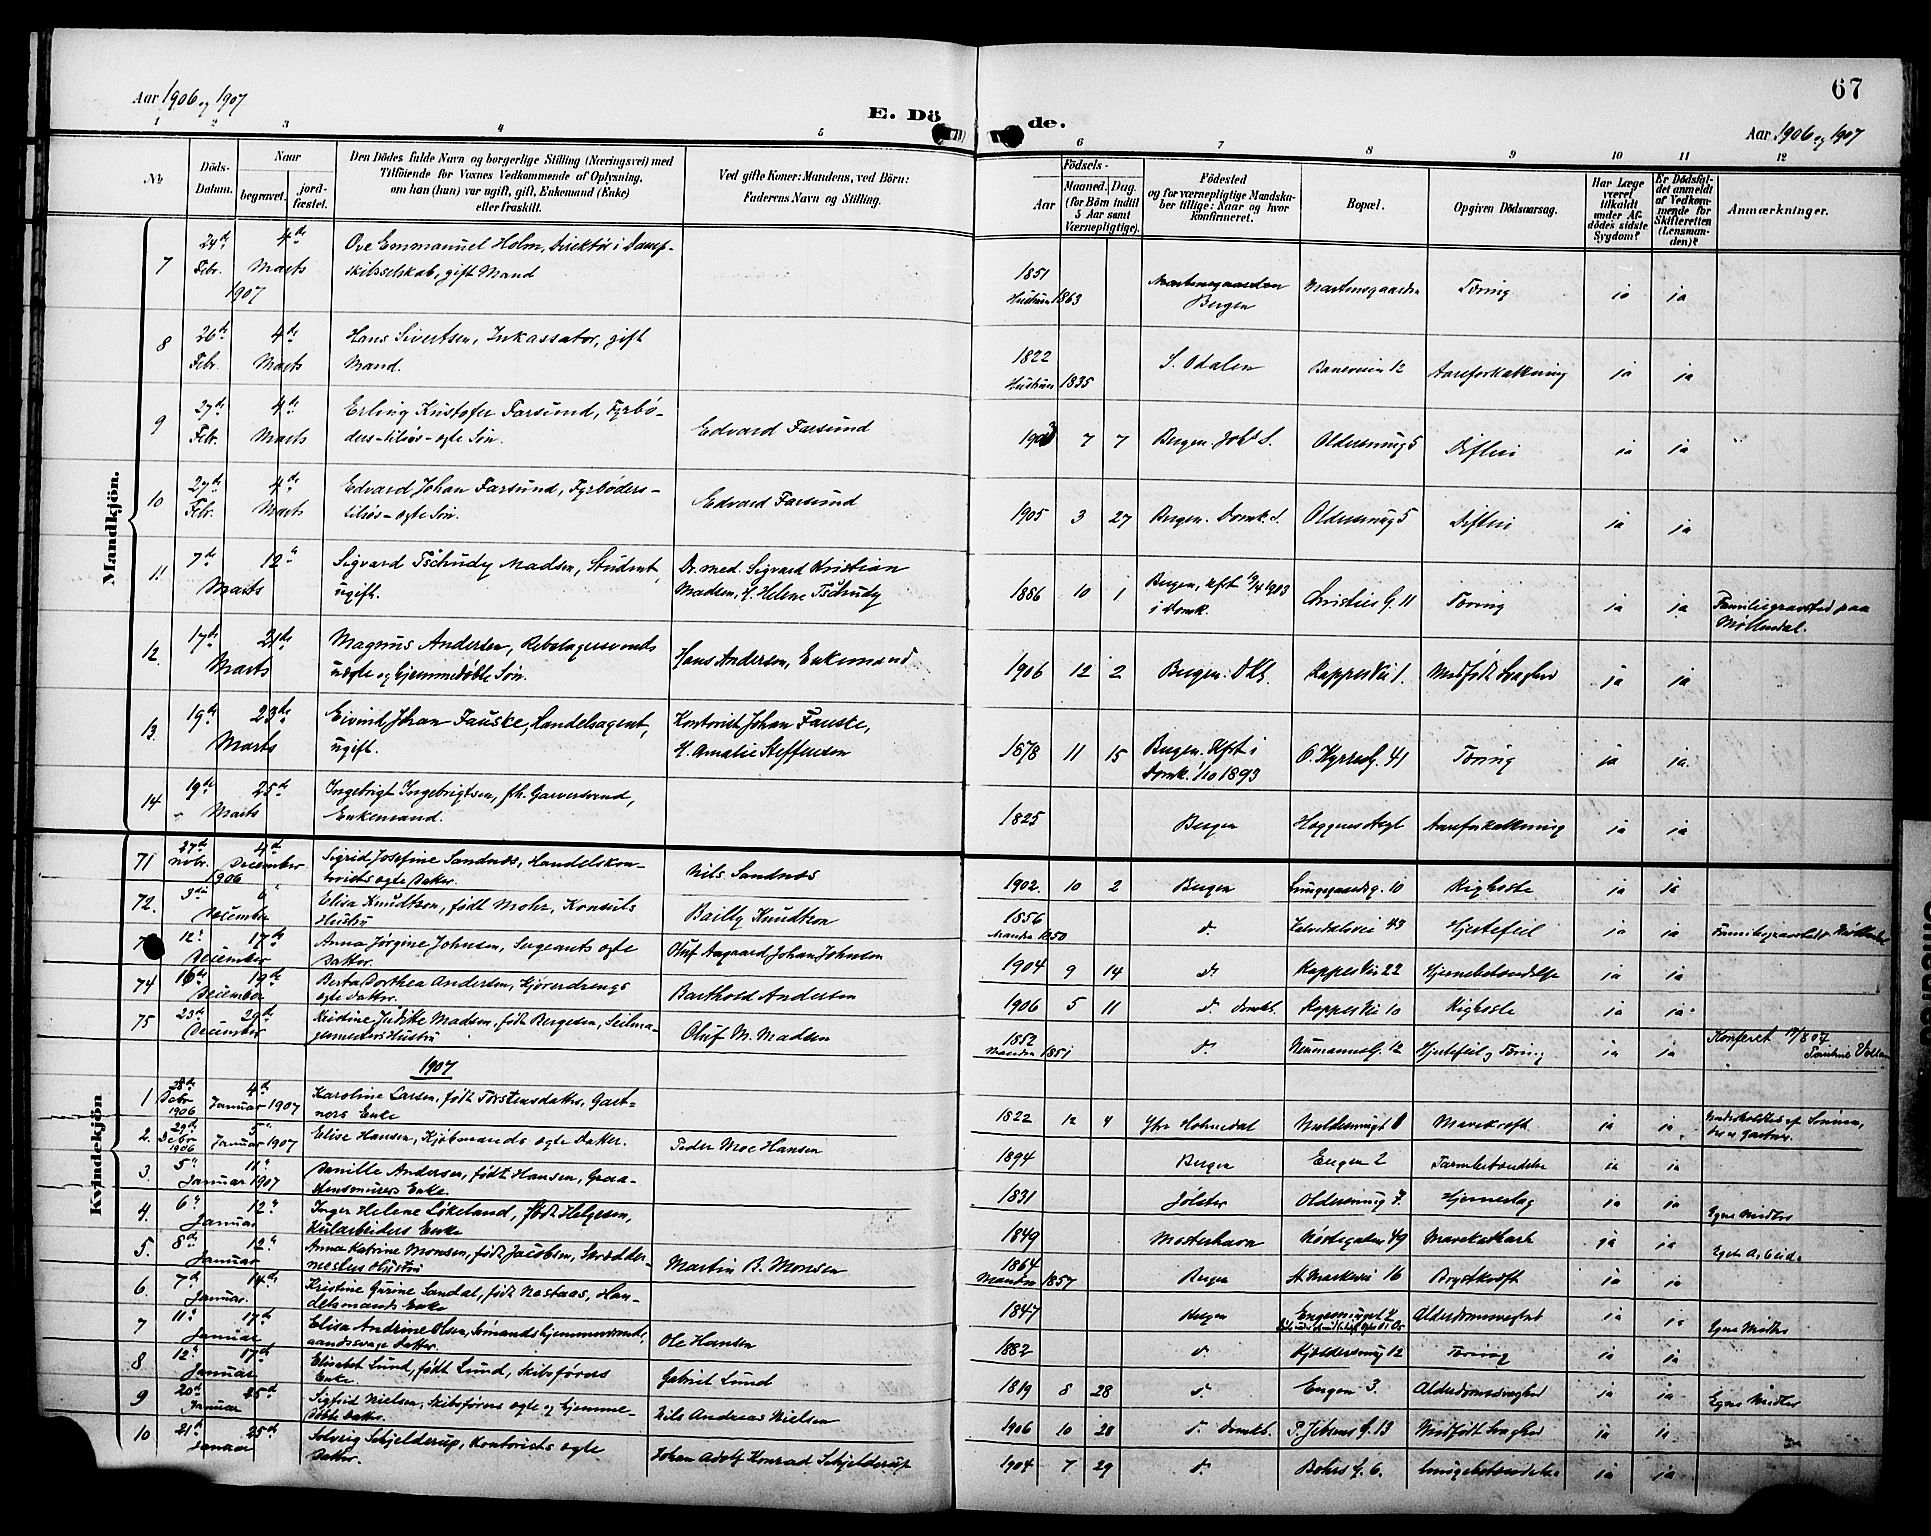 67
Aar 1906 og 1907
E. Döde.
Aar 1906 og 1907
1 2 3 4 5 6 7 8 9 10 11 12
No
Döds-Datum.
Naar begravet. jordfæstet.
Den Dödes fulde Navn og borgerlige Stilling (Næringsvei) med
Tilföiende for Voxnes Vedkommende af Oplysning,
om han (hun) var ugift, gift, Enkemand (Enke)
eller fraskilt.
Ved gifte Koner: Mandens, ved Börn:
Faderens Navn og Stilling.
Födsels-
Aar
Maaned. Dag.
(for Börn indtil
5 Aar samt
Værnepligtige).
Födested
og for værnepligtige Mandskaber tillige: Naar og hvor
konfirmeret.
Bopæl.
Opgiven Dödsaarsag.
Har Læge været tilkaldt under Afdödes sidste Sygdom?
Er Dödsfaldet anmeldt af Vedkommende for Skifteretten (Lensmanden)?
Anmærkninger.
Mandkjön.
7 24de Febr. 4de Marts 1907 Ove Emmanuel Holm, Direktör i Dampskibsselskab, gift Mand 1851 Hustruen 1863 Bergen Martensgaarden Tæring ja ja
8 26de Febr. 4de Marts Hans Sivertsen, Inkassator, gift Mand. 1822 Hustruen 1835 S. Odalen Baneveien 12 Aareforkalkning ja ja
9 27de Febr. 4de Marts Erling Kristofer Farsund, Fyrbøders ægte Søn. Edvard Farsund 7 7 Bergen. Joh. S. Oldersmug 5 Difteri ja ja
10 27de Febr. 4de Marts Edvard Johan Farsund, Fyrbøders ægte Søn. Edvard Farsund 1905 3 27 Bergen. Domk. S. Oldersmug 5 Difteri ja ja
11 7de Marts 12te Sigvard Tschudy Madsen, Student, ugift. Dr. med. Sigvard Kristian Madsen, H. Helene Tschudy 10 1 Bergen, kfst 1903 i Domk. Christies G. 11 Tæring ja ja Familiegravsted paa Møllendal.
12. 17de Marts 21de Magnus Andersen, uægte og hjemmedøbte Søn. Hans Andersen, Enkemand 1906 12 2 Bergen. Dk. Kappesvei 1. Medfødt Svaghed ja ja
13. 19de Marts 23de Eivind Johan Fauske, Handelsagent, ugift. Kontorist Johan Fauske, H. Amalie Steffensen 1878 11 15 Bergen. Kfst i Domk. 1/10 1893 O. Kyrresg. 41 Tæring ja ja
14 19de Marts 25de Ingebrigt Ingebrigtsen, fh. Garversvend, Enkemand. 1825 Bergen Aareforkalkning ja ja
Kvindekjön
71 27de Novbr. 4de December 1906 Sigrid Josefine Sandnes, Handelskontorists ægte Datter. Nils Sandnes 1902. 10 2 Bergen Lungegaardsg. 10 Kighoste ja ja
72. 3die December 6te Elisa Knudtzon, født Mohr, Konsuls Hustru Bailly Knudtzon 1856 Manden 1850 d. 43 Hjertefeil ja ja Familiegravsted Møllendal
12te December 17de Anna Jørgine Johnsen, Sergeants ægte Datter. Oluf Aagaard Johan Johnsen 1904 9 14 d. Kappesvei 22 Hjernebetændelse ja ja
74 16de December 19de Berta Dorthea Andersen, Kjøredrengs ægte Datter. Barthold Andersen 1906 5 11 d. Domk. Kappesvei 10 Kighoste ja ja
75 23de December 29de Kristine Judike Madsen, født Børgesen, Seilmagermesters Hustru Oluf M. Madsen 1852 Manden 1851 d. Neumannsg. 12 Hjertefeil og Tæring ja ja
1907
1 28de Decbr 1906 4de Januar 1907 Karoline Larsen, født Torstensdatter, Gartners Enke 1822 12 4 Ytre Holmedal Mavekræft ja ja
2. 29de Decbr 1906 5te Januar 1907 Elise Hansen, Kjøbmands ægte Datter. Peder Moe Hansen 1894 Bergen Engen 2 Tarmbetændelse ja ja
3 5te Januar 1907 11te Danille Andersen, født Hansen, Graastensmurers Enke. 1831 Jølster Oldersmug 7. Hjerneslag ja ja
4. 6te Januar 12te Inger Helene Løkeland, født Helgesen, Kularbeiders Enke 1849 Mosterhavn Nøstegaten 49 Mavekatharh ja ja Egne Midler
5. 8de Januar 12te Anna Katrine Monsen, født Jacobsen, Skræddermesters Hustru Martin B. Monsen 1864 Manden 1857 Bergen St. Markevei 16 Brystkræft ja ja
6. 7de Januar. 14de Kristine Gurine Sandal, født Nestaas, Handelsmands Enke 1847 Bergen Alderdomssvaghed ja ja Egne Midler
7 11te Januar 17de Elisa Andrine Olsen, aandssvage Datter. Ole Hansen 1882 d. Kjeldersmug 12 Tæring ja ja
8 12te Januar 17de Elisabet Lund, født Lund, Skibsførers Enke. Gabriel Lund 1819 8 28 d. Engen 3. Alderdomssvaghed ja ja Egne Midler
9 20de Januar 25de Sigfrid Nielsen, Skibsførers ægte og hjemmedøbte Datter. Nils Andreas Nielsen 1906 10 28 d. Domk. P. Jebsens G. 13 Medfødt Svaghed ja ja
10 21de Januar 25de Solveig Schjelderup, Kontorists ægte Datter. Johan Adolf Konrad Schjelderup 1904 7 29 d. Bohrs G. 6. Lungebetændelse ja ja